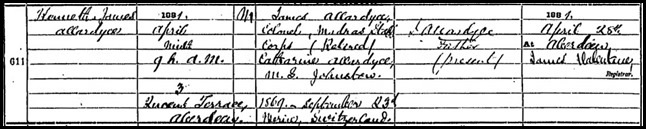 Kenneth James
Allardyce
611
1881.
April
9h. A.M.
3
Queens Terrace,
Aberdeen
M
James Allardyce,
Colonel, Madras Staff
Corps (Retired)
Catharine Allardyce,
M. S. Johnston.
1869. September 23d
Switzerland.
J. Allardyce
Father
(present)
1881.
April 28th
At Aberdeen
James Valentine,
Registrar.